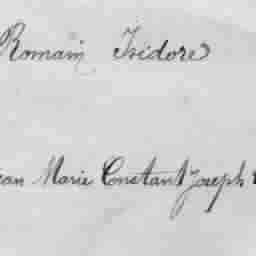 Romain Isidore
ean Marie Constant Joseph